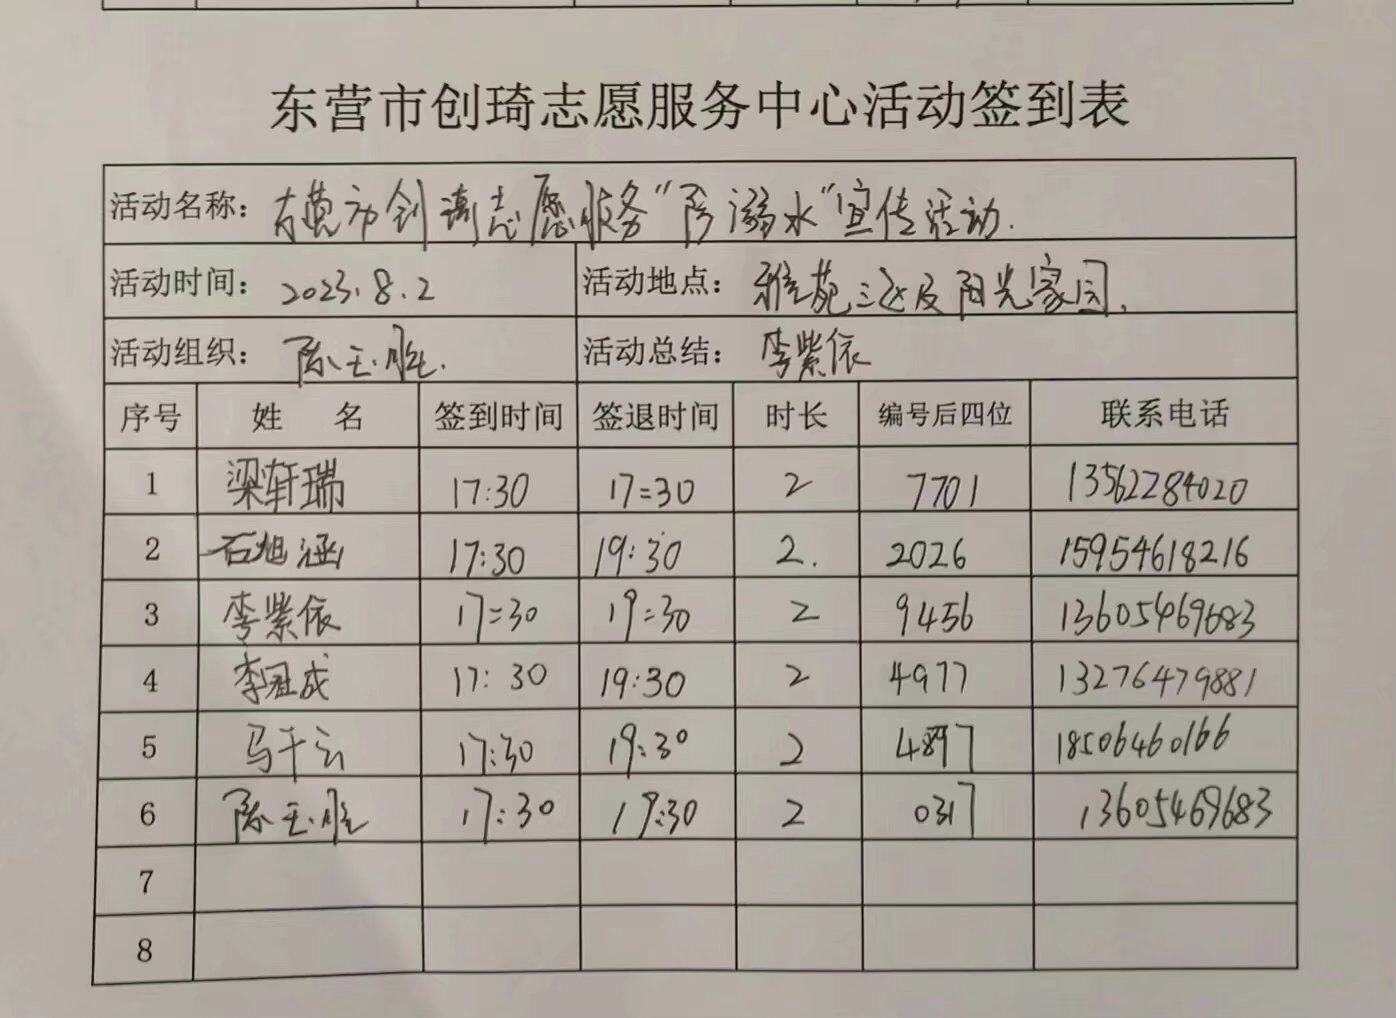 东营市创琦志愿服务中心活动签到表
活动名称: 东营市创琦志愿服务“防溺水”宣传活动.
活动时间: 2023.8.2 活动地点: 雅苑三区及阳光家园.
活动组织: 陈玉胜. 活动总结: 李紫依
序号 姓 名 签到时间 签退时间 时长 编号后四位 联系电话
1 梁轩瑞 17:30 17:30 2 7701 13562284020
2 石旭涵 17:30 19:30 2. 2026 15954618216
3 李紫依 17:30 19:30 2 9456 13605469683
4 李冠成 17:30 19:30 2 4977 13276479881
5 马千云 17:30 19:30 2 4897 18506460166
6 陈玉胜 17:30 19:30 2 0317 13605469683
7
8